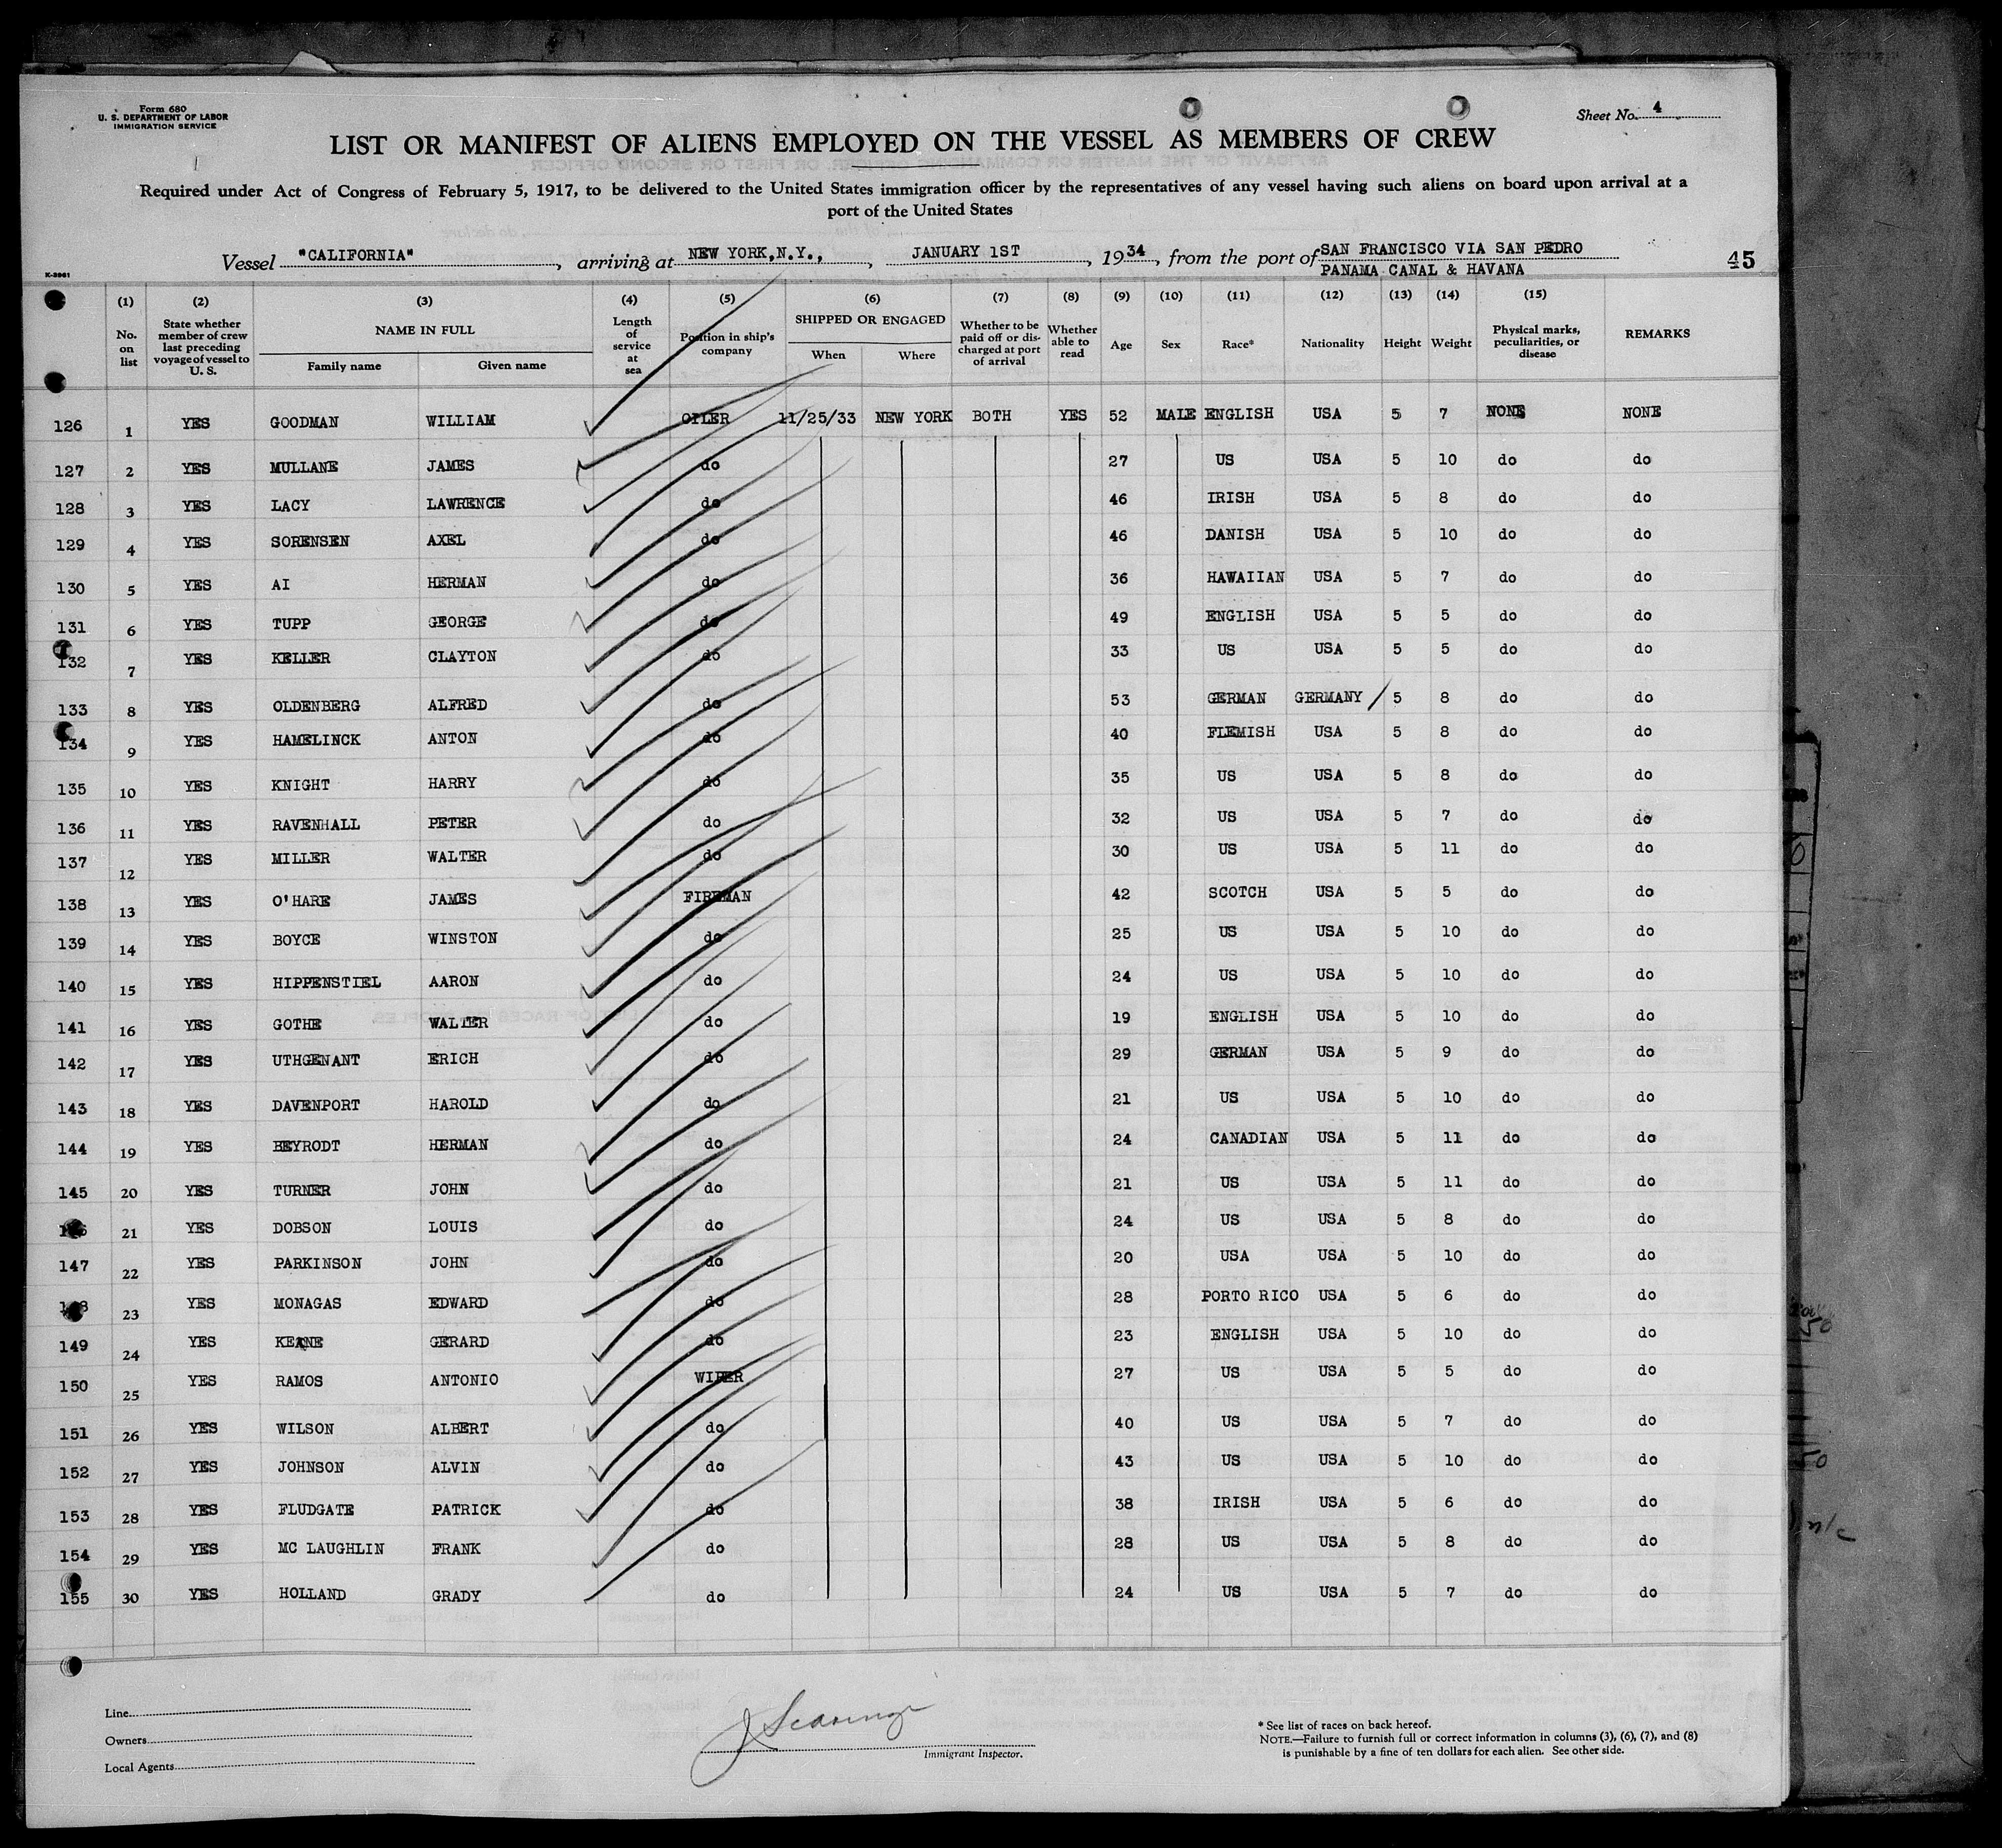 Form 680
U. S. DEPARTMENT OF LABOR
IMMIGRATION SERVICE
Sheet No. 4
LIST OR MANIFEST OF ALIENS EMPLOYED ON THE VESSEL AS MEMBERS OF CREW
Required under Act of Congress of February 5, 1917, to be delivered to the United States immigration officer by the representatives of any vessel having such aliens on board upon arrival at a
port of the United States
Vessel "CALIFORNIA", arriving at NEW YORK,N.Y., , JANUARY 1ST, 1934, from the port of SAN FRANCISCO VIA SAN PEDRO
PANAMA CANAL & HAVANA
45
K-3961
(1) (2) (3) (4) (5) (6) (7) (8) (9) (10) (11) (12) (13) (14) (15)
No. on list State whether member of crew last preceding voyage of vessel to U. S. NAME IN FULL Family name Given name Length of service at sea Position in ship's company SHIPPED OR ENGAGED When Where Whether to be paid off or discharged at port of arrival Whether able to read Age Sex Race* Nationality Height Weight Physical marks, peculiarities, or disease REMARKS
126 1 YES GOODMAN WILLIAM OILER 11/25/33 NEW YORK BOTH YES 52 MALE ENGLISH USA 5 7 NONE NONE
127 2 YES MULLANE JAMES do 27 US USA 5 10 do do
128 3 YES LACY LAWRENCE do 46 IRISH USA 5 8 do do
129 4 YES SORENSEN AXEL do 46 DANISH USA 5 10 do do
130 5 YES AI HERMAN do 36 HAWAIIAN USA 5 7 do do
131 6 YES TUPP GEORGE do 49 ENGLISH USA 5 5 do do
132 7 YES KELLER CLAYTON do 33 US USA 5 5 do do
133 8 YES OLDENBERG ALFRED do 53 GERMAN GERMANY / 5 8 do do
134 9 YES HAMELINCK ANTON do 40 FLEMISH USA 5 8 do do
135 10 YES KNIGHT HARRY do 35 US USA 5 8 do do
136 11 YES RAVENHALL PETER do 32 US USA 5 7 do do
137 12 YES MILLER WALTER do 30 US USA 5 11 do do
138 13 YES O'HARE JAMES FIREMAN 42 SCOTCH USA 5 5 do do
139 14 YES BOYCE WINSTON do 25 US USA 5 10 do do
140 15 YES HIPPENSTIEL AARON do 24 US USA 5 10 do do
141 16 YES GOTHE WALTER do 19 ENGLISH USA 5 10 do do
142 17 YES UTHGENANT ERICH do 29 GERMAN USA 5 9 do do
143 18 YES DAVENPORT HAROLD do 21 US USA 5 10 do do
144 19 YES BEYRODT HERMAN do 24 CANADIAN USA 5 11 do do
145 20 YES TURNER JOHN do 21 US USA 5 11 do do
21 YES DOBSON LOUIS do 24 US USA 5 8 do do
147 22 YES PARKINSON JOHN do 20 USA USA 5 10 do do
23 YES MONAGAS EDWARD do 28 PORTO RICO USA 5 6 do do
149 24 YES KEANE GERARD do 23 ENGLISH USA 5 10 do do
150 25 YES RAMOS ANTONIO WIPER 27 US USA 5 5 do do
151 26 YES WILSON ALBERT do 40 US USA 5 7 do do
152 27 YES JOHNSON ALVIN do 43 US USA 5 10 do do
153 28 YES FLUDGATE PATRICK do 38 IRISH USA 5 6 do do
154 29 YES MC LAUGHLIN FRANK do 28 US USA 5 8 do do
155 30 YES HOLLAND GRADY do 24 US USA 5 7 do do
Line
Owners
Local Agents
Immigrant Inspector.
* See list of races on back hereof.
NOTE.—Failure to furnish full or correct information in columns (3), (6), (7), and (8)
is punishable by a fine of ten dollars for each alien. See other side.